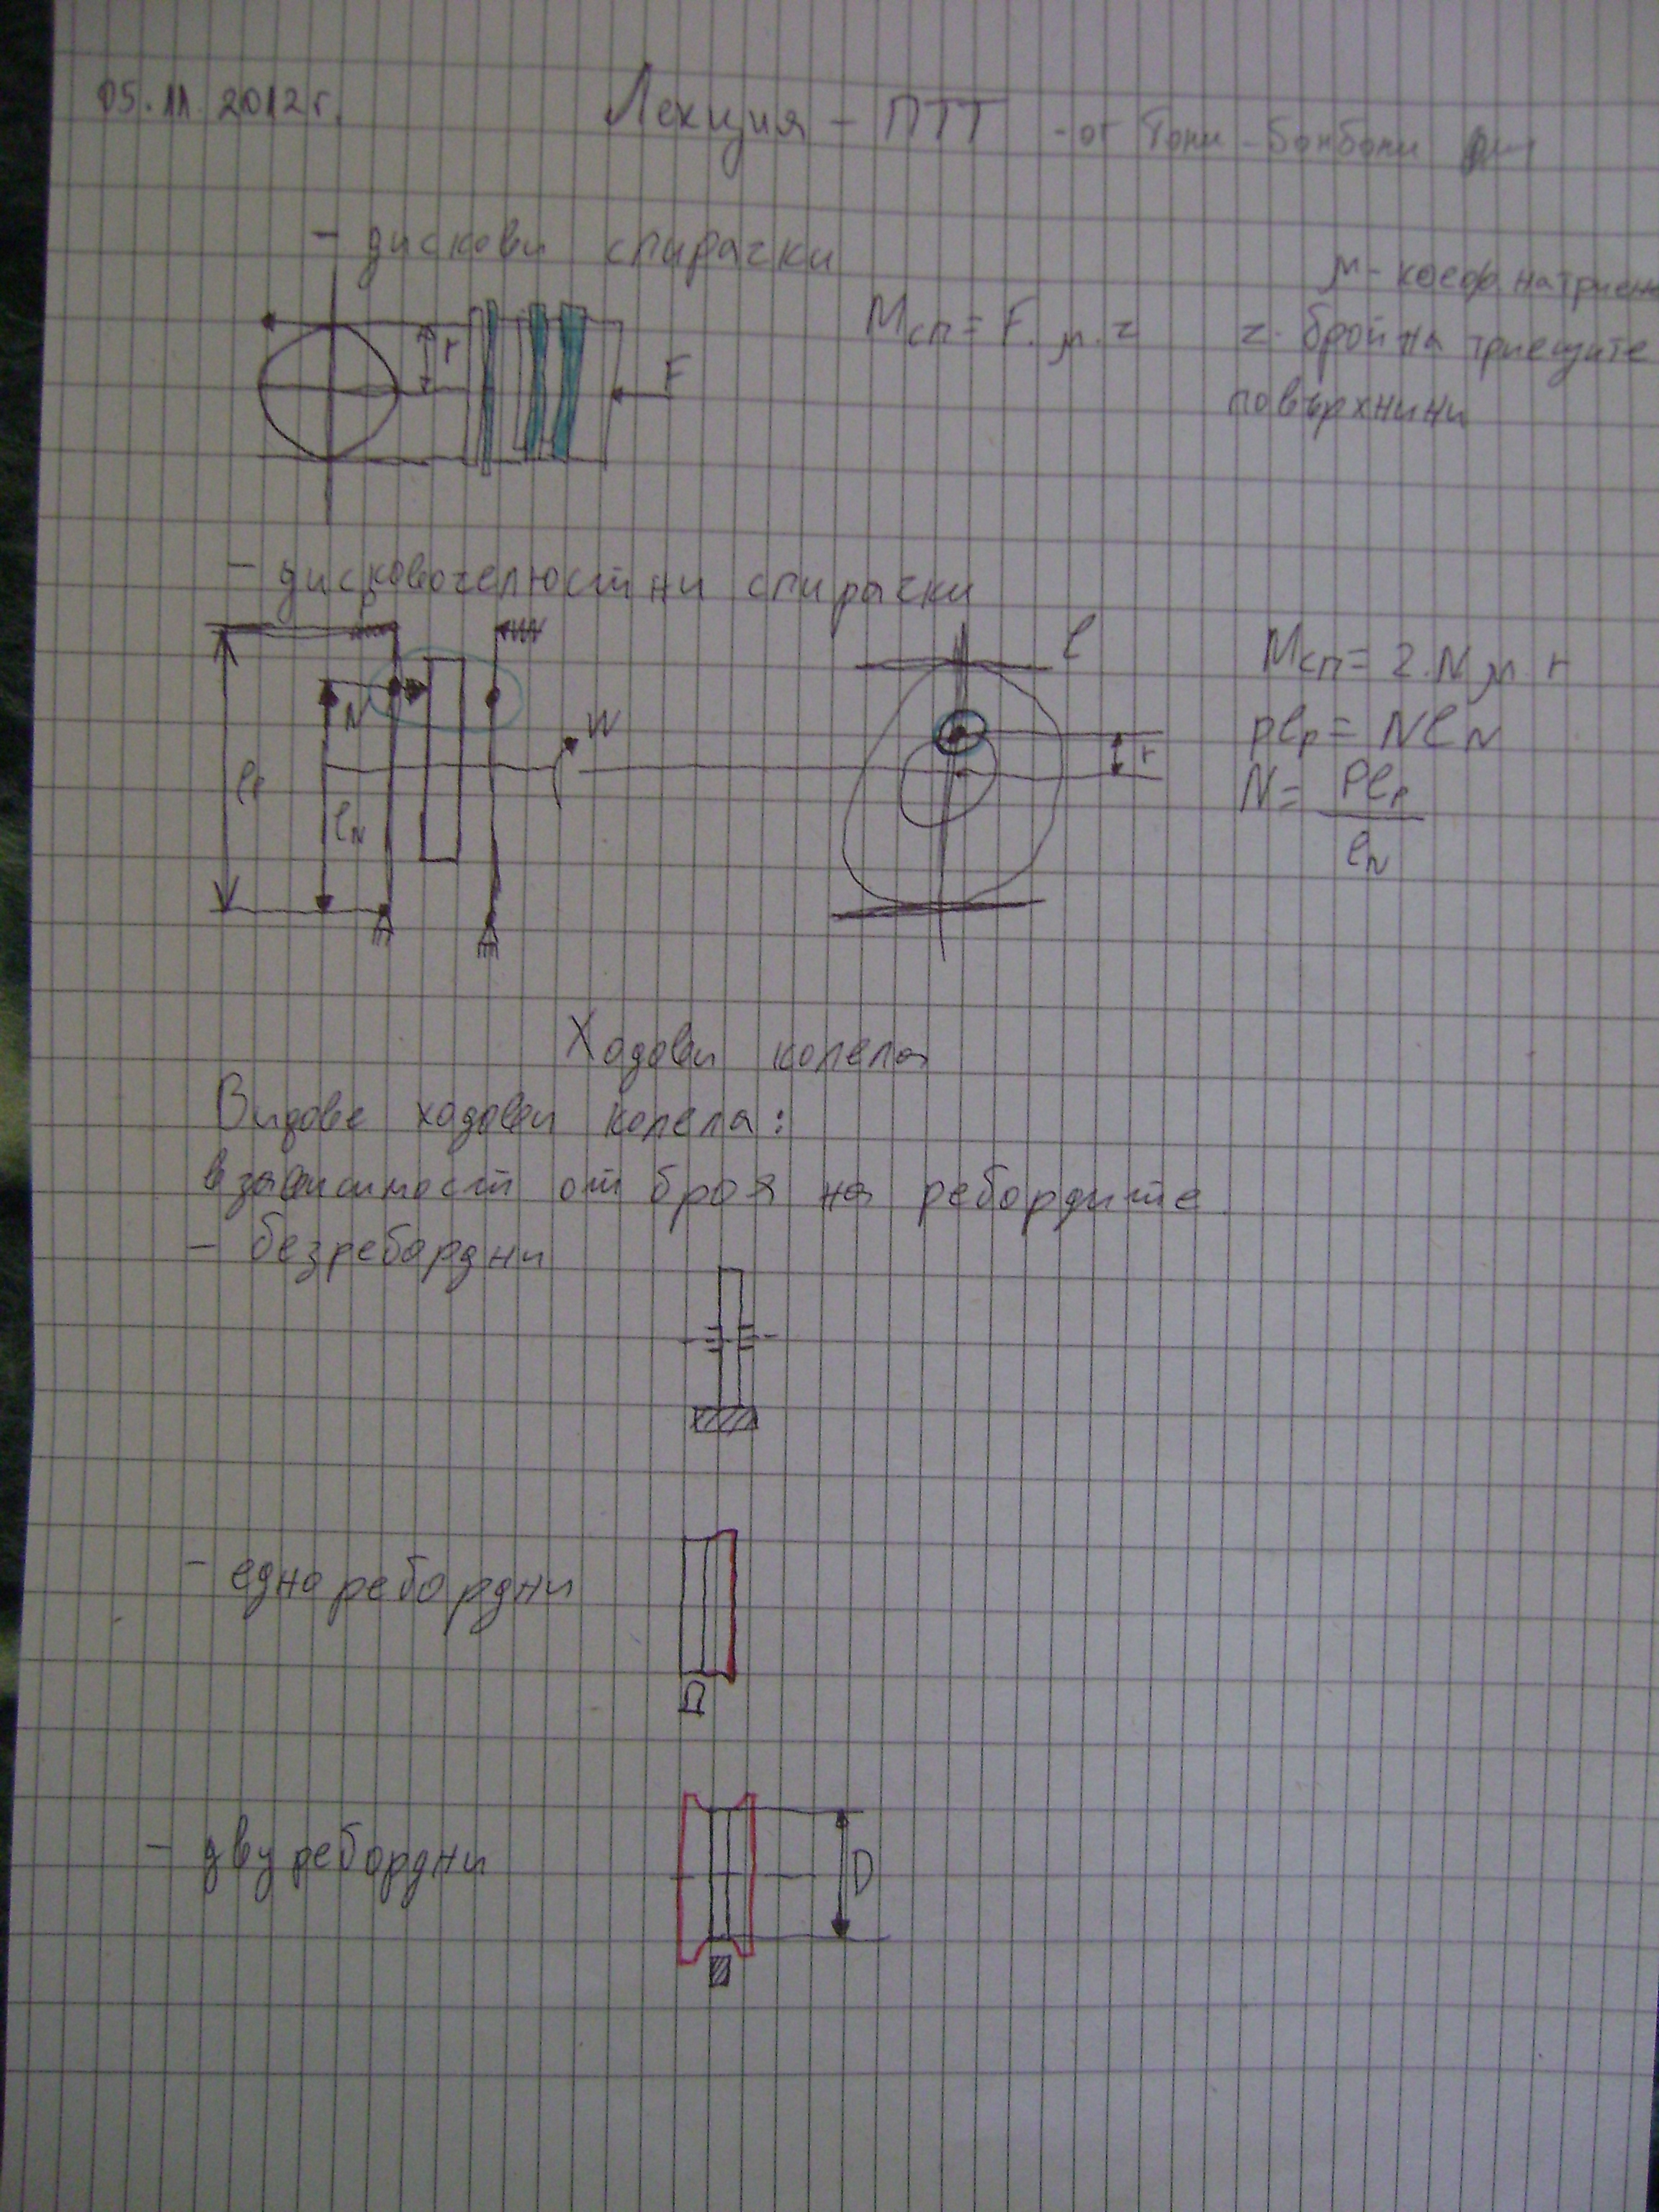 05.11.2012г. Лекция - ПТТ - от Тони - Бонбони
- дискови спирачки
μ - коеф. на триене
Mсп = F. μ. z
z - брой на триещите
повърхнини
r
F
- дисковочелюстни спирачки
P
l
N
W
r
lp
lN
Mсп = 2. N μ. r
Plp = NlN
N = Plp / lN
Ходови колела
Видове ходови колела:
в зависимост от броя на ребордите
- безребордни
- едноребордни
- двуребордни
D